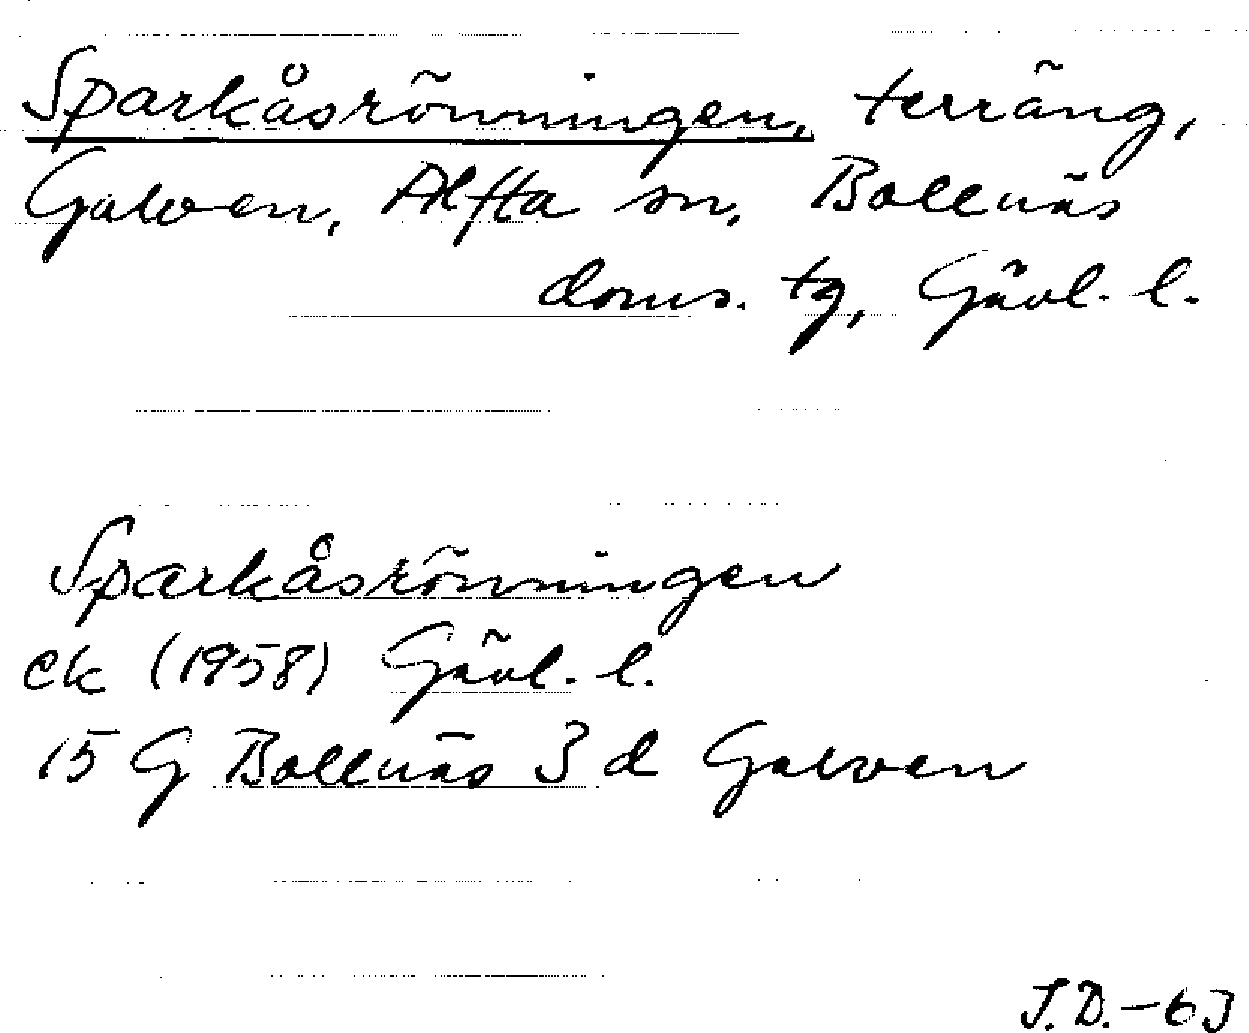 Sparkåsrönningen, terräng,
Galven, Alfta sn, Bollnäs
doms. tg, Gävl. l.
Sparkåsrönningen
ek (1958) Gävl. l.
15 G Bollnäs 3 d Galven
J.D.-63